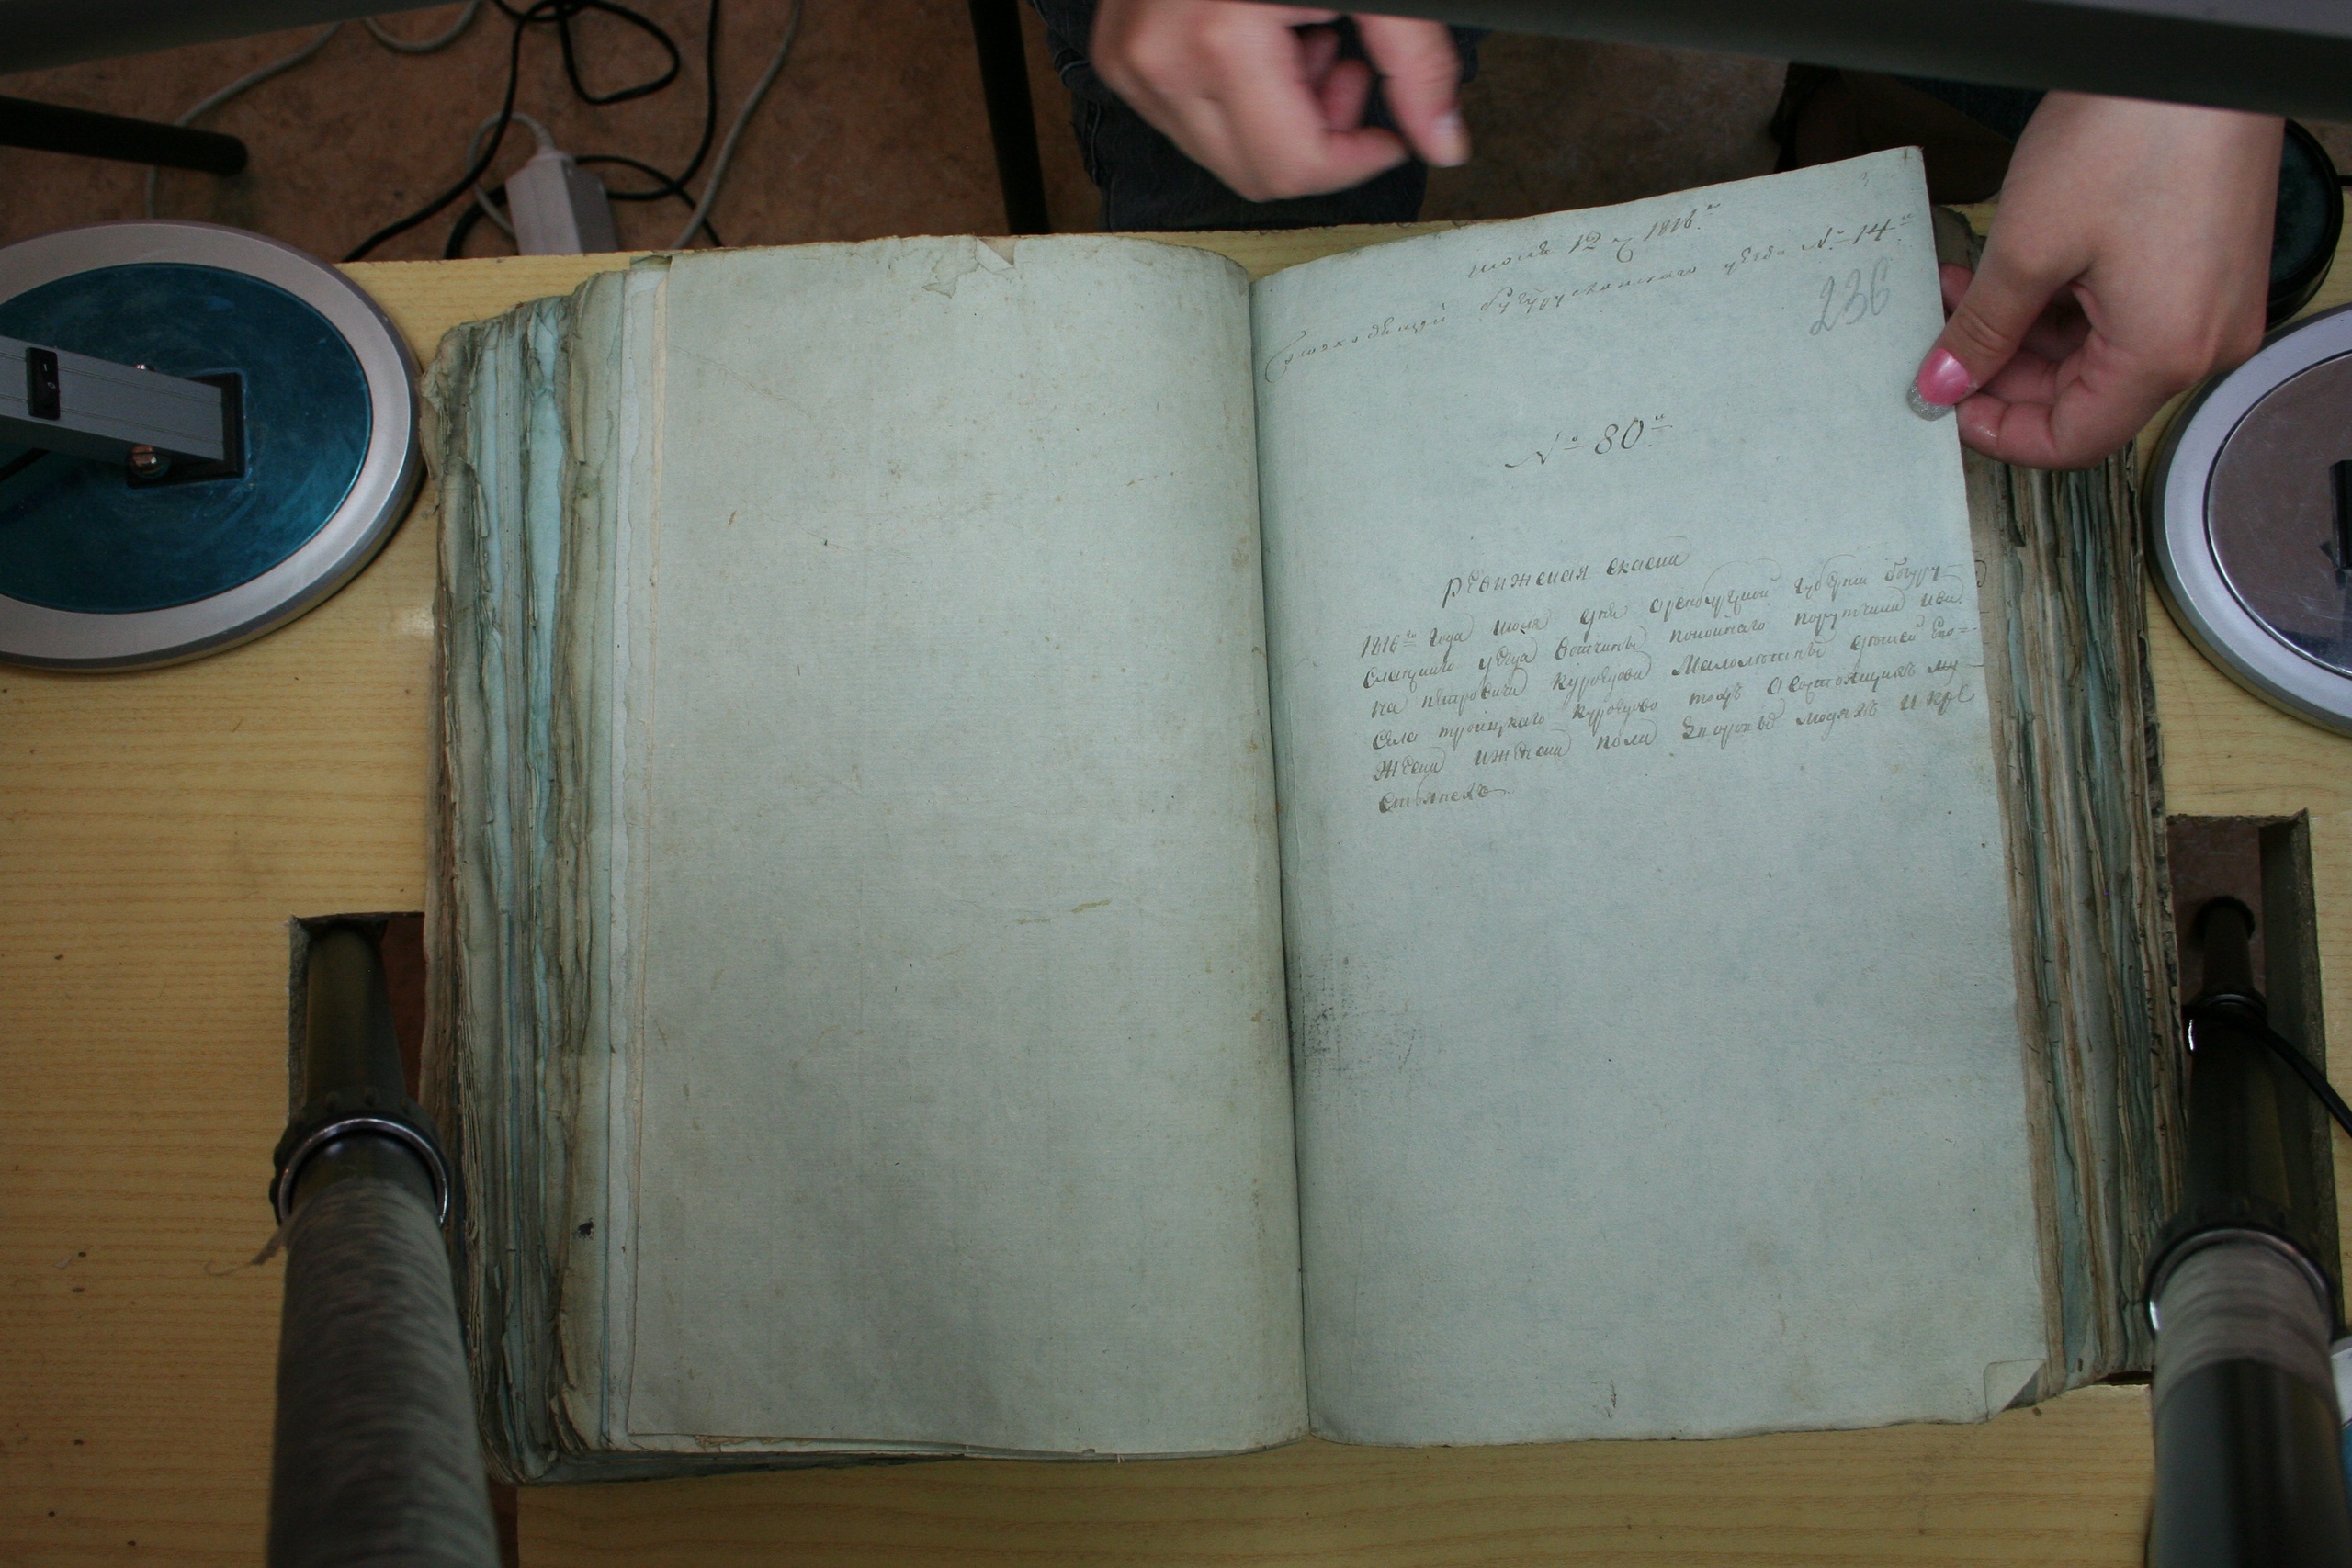 июля 12 д 1816.го
бугурусланского уезда №. 14.й
236
№ 80.й
Ревижская скаска
1816го года июля дня оренбургской губернии бугуру-
сланцкаго уезда вотчины покойнаго порутчика ива
на петровича куроедова Малолютныя дочьери
села троицкаго куроедово тожъ о состоящихъ му
жеска иженска пола дворовыхъ людяхъ и кре
стьянехъ